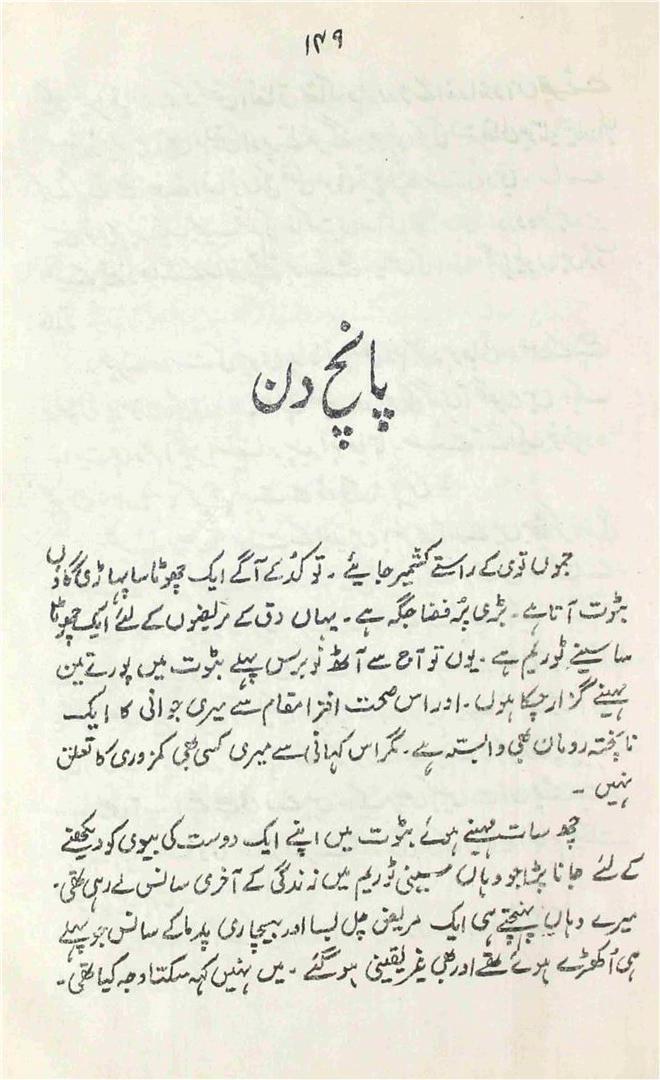 ۱۴۹
پانچ دن
جموں توی کے راستے کشمیر جایئے۔ تو کُد کے آگے ایک چھوٹا سا پہاڑی گاؤں
بٹوت آتا ہے۔ بڑی پُر فضا جگہ ہے۔ یہاں دق کے مریضوں کے لئے ایک چھوٹا
سا سینے ٹوریم ہے۔ یوں تو آج سے آٹھ نو برس پہلے بٹوت میں پورے تین
مہینے گزار چکا ہوں۔ اور اس صحت افزا مقام سے میری جوانی کا ایک
ناپختہ رومان بھی وابستہ ہے۔ مگر اس کہانی سے میری کسی بھی کمزوری کا تعلق
نہیں۔
چھ سات مہینے ہوئے بٹوت میں اپنے ایک دوست کی بیوی کو دیکھنے
کے لئے جانا پڑا جو وہاں سینی ٹوریم میں زندگی کے آخری سانس لے رہی تھی۔
میرے وہاں پہنچتے ہی ایک مریض چل بسا اور بیچاری پدما کے سانس جو پہلے
ہی اُکھڑے ہوئے تھے اور بھی غیر یقینی ہو گئے۔ میں نہیں کہہ سکتا وجہ کیا تھی۔